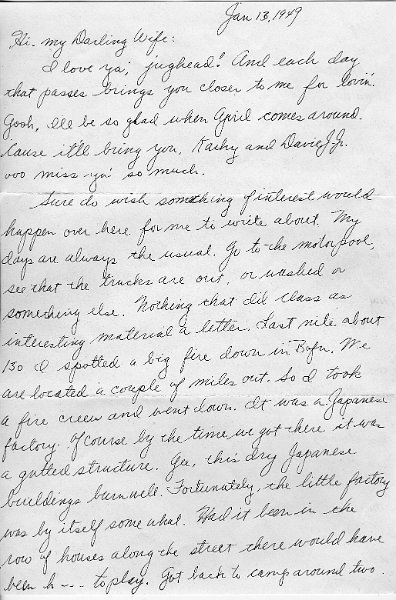 Jan 13, 1949
Hi. my Darling Wife:
I love ya', jughead! And each day
that passes brings you closer to me for lovin'.
Gosh, I'll be so glad when April comes around.
Cause it'll bring you, Kathy and David Jr.
ooo miss ya' so much.
Sure do wish something of interest would
happen over here for me to write about. My
days are always the usual. Go to the motorpool,
see that the trucks are out, or washed or
something else. Nothing that I'd class as
interesting material a letter. Last nite about
130 I spotted a big fire down in Bofu. We
are located a couple of miles out. So I took
a fire crew and went down. It was a Japanese
factory. Of course by the time we got there it was
a gutted structure. Gee, this dry Japanese
buildings burn well. Fortunately, the little factory
was by itself some what. Had it been in the
row of houses along the street there would have
been h--- to play. Got back to camp around two.